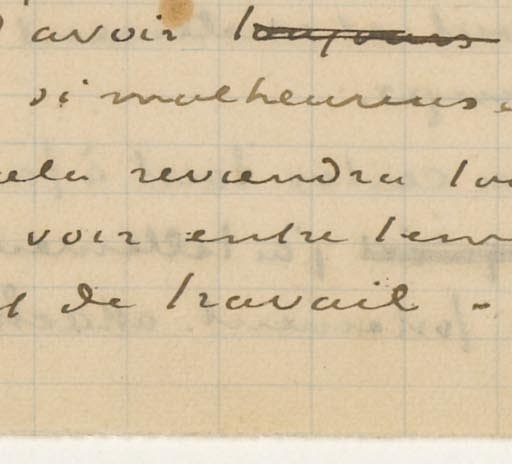 avoir toujours
si malheureuse
cela reviendra tou
voir entre tem
de travail -